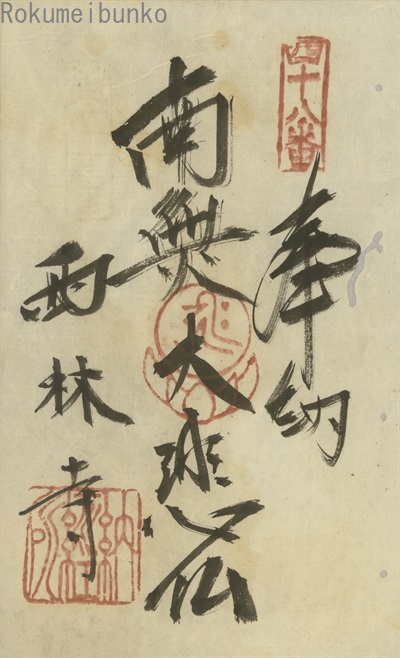 Rokumeibunko
四十八番
奉納
南無大悲仏
西林寺
納経